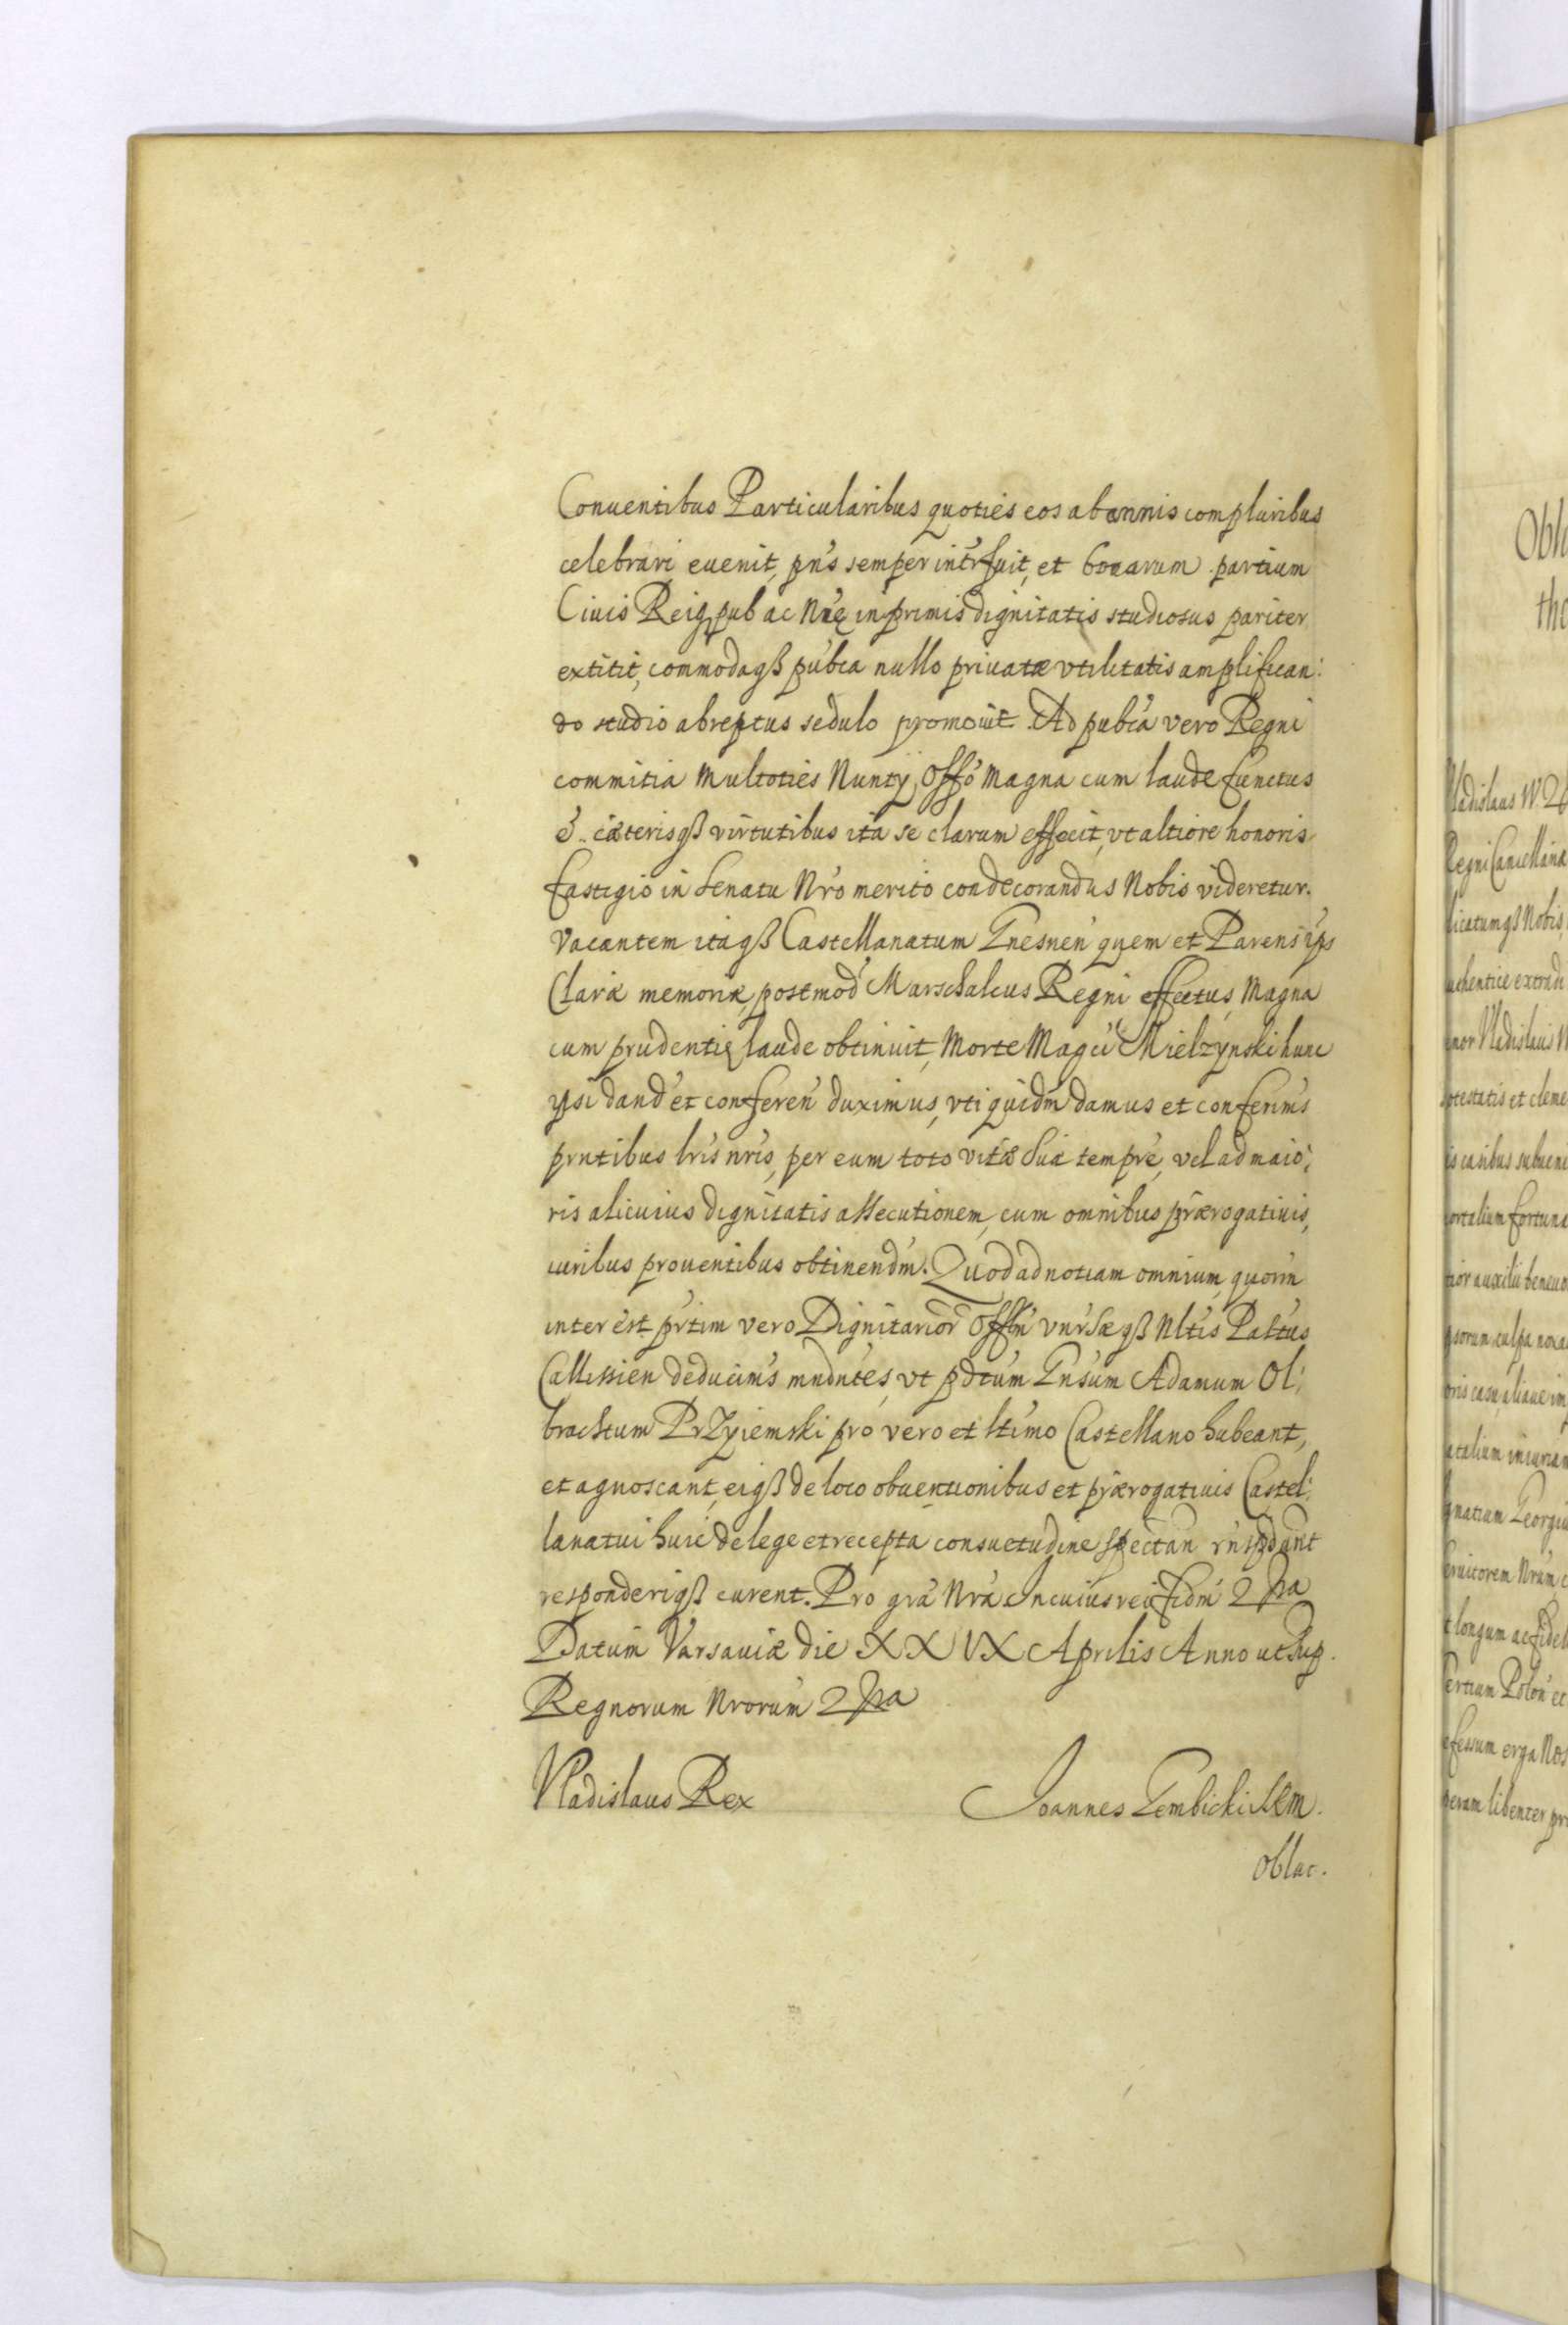 Conuentibus Particularibus quoties eos ab annis compluribus
celebrari euenit, pn's semper interfuit, et bonarum partium
Ciuis Reiqpub ac Nrę inprimis dignitatis studiosus pariter
extitit, commodaqß pub'ca nullo priuatæ vtilitatis amplifican:
do studio abreptus sedulo promouit. Ad pub'ca vero Regni
commitia multoties Nuntÿ Offo magna cum laude functus
e'. cæterisqß virtutibus ita se clarum effecit, vt altiore honoris
fastigio in Senatu Nro merito condecorandus Nobis videretur.
Vacantem itaqß Castellanatum Gnesnen quem et Parens ips
Claræ memoriæ, postmod Marschalcus Regni effectus, magna
cum prudentię laude obtinuit, morte Magci Mielzynski hunc
ipsi dand et conferen duximus, vti quidm damus et conferim's
prntibus lris nris, per eum toto vitæ suæ tempre, vel ad maio:
ris alicuius dignitatis assecutionem, cum omnibus prærogatiuis,
iuribus prouentibus obtinendm. Quod ad notiam omnium, quorm
interest prtim vero Dignitarior Offln vnrsæqß Nltis Paltus
Callissien deducim's mndntes, vt pdtum Gnsum Adamum Ol:
brachtum Przyiemski pro vero et ltimo Castellano habeant,
et agnoscant, eiqß de loco obuentionibus et prærogatiuis Castel:
lanatui huic de lege et recepta consuetudine spectan rnspdant
responderiqß curent. Pro gra Nra In cuius rei fidm
Datum Varsauiæ die XXVIX Aprilis Anno ut sup.
Regnorum Nrorum
Vladislaus Rex Joannes Gembicki
Oblat.
Obl
the
Vladislaus IV
Regni Cancellaria
licatumqß Nobis,
uthentice extradi
Vladislaui
potestatis et cleme
is casibus subuene
ortalium fortuna
auxilii beneuo
culpa
Georgiu
Nrum
longum ac fidel
Polon et
erga Nos
libenter pr